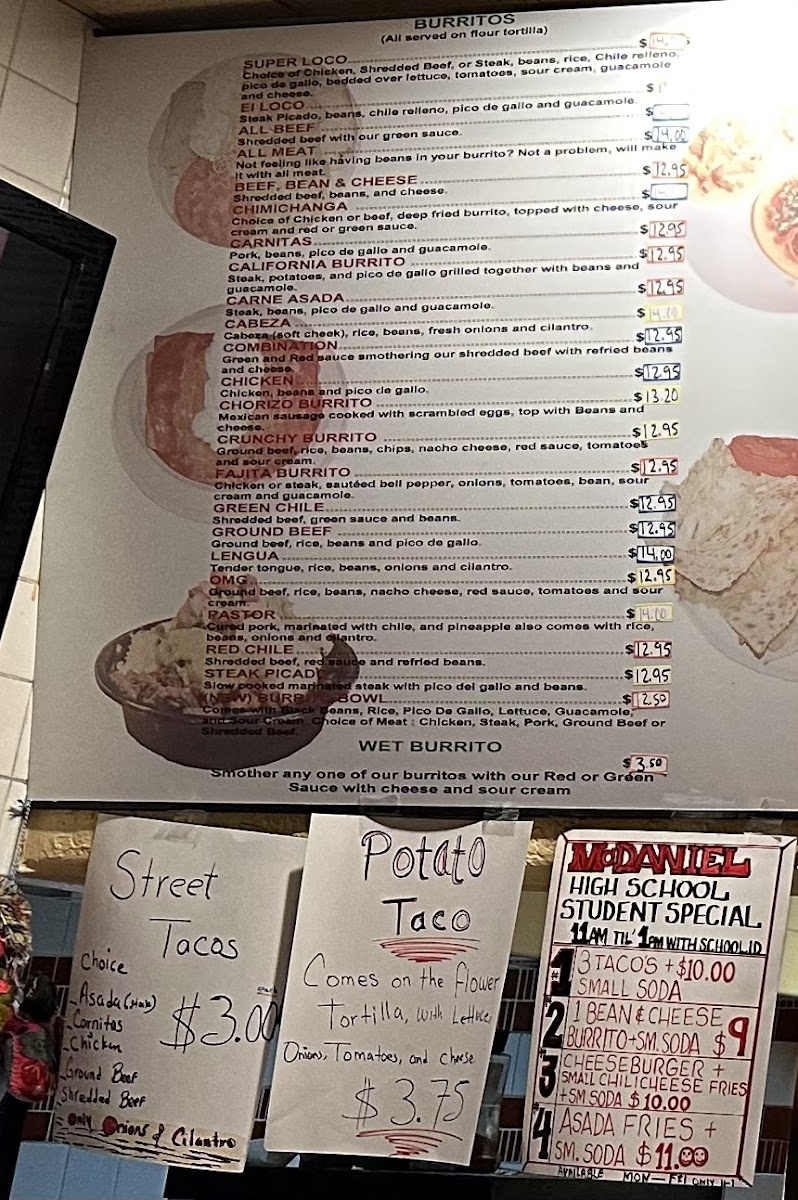 BURRITOS
(All served on flour tortilla)
SUPER LOCO $
Choice of Chicken, Shredded Beef, or Steak, beans, rice, Chile relleno,
pico de gallo, bedded over lettuce, tomatoes, sour cream, guacamole
and cheese.
El LOCO $
Steak Picado, beans, chile relleno, pico de gallo and guacamole.
ALL BEEF $
Shredded beef with our green sauce.
ALL MEAT $14.00
Not feeling like having beans in your burrito? Not a problem, will make
it with all meat.
BEEF, BEAN & CHEESE $12.95
Shredded beef, beans, and cheese.
CHIMICHANGA $
Choice of Chicken or beef, deep fried burrito, topped with cheese, sour
cream and red or green sauce.
CARNITAS $12.95
Pork, beans, pico de gallo and guacamole.
CALIFORNIA BURRITO $12.95
Steak, potatoes, and pico de gallo grilled together with beans and
guacamole.
CARNE ASADA $12.95
Steak, beans, pico de gallo and guacamole.
CABEZA $14.00
Cabeza (soft cheek), rice, beans, fresh onions and cilantro.
COMBINATION $12.95
Green and Red sauce smothering our shredded beef with refried beans
and cheese.
CHICKEN $12.95
Chicken, beans and pico de gallo.
CHORIZO BURRITO $13.20
Mexican sausage cooked with scrambled eggs, top with Beans and
cheese.
CRUNCHY BURRITO $12.95
Ground beef, rice, beans, chips, nacho cheese, red sauce, tomatoes
and sour cream.
FAJITA BURRITO $12.95
Chicken or steak, sautéed bell pepper, onions, tomatoes, bean, sour
cream and guacamole.
GREEN CHILE $12.95
Shredded beef, green sauce and beans.
GROUND BEEF $12.95
Ground beef, rice, beans and pico de gallo.
LENGUA $14.00
Tender tongue, rice, beans, onions and cilantro.
OMG $12.95
Ground beef, rice, beans, nacho cheese, red sauce, tomatoes and sour
cream.
PASTOR $14.00
Cured pork, marinated with chile, and pineapple also comes with rice,
beans, onions and cilantro.
RED CHILE $12.95
Shredded beef, red sauce and refried beans.
STEAK PICADO $12.95
Slow cooked marinated steak with pico del gallo and beans.
(NEW) BURRITO BOWL $12.50
Comes with Black Beans, Rice, Pico De Gallo, Lettuce, Guacamole,
and Sour Cream. Choice of Meat : Chicken, Steak, Pork, Ground Beef or
Shredded Beef.
WET BURRITO
$3.50
Smother any one of our burritos with our Red or Green
Sauce with cheese and sour cream
Street
Tacos
Choice
- Asada
- Carnitas
- Chicken
- Ground Beef
Shredded Beef
each
$3.00
Only Onions & Cilantro
Potato
Taco
Comes on the flower
Tortilla, with Lettuce
Onions, Tomatoes, and cheese
$3.75
McDANIEL
HIGH SCHOOL
STUDENT SPECIAL
11AM TIL' 1PM WITH SCHOOL ID
#1 3 TACO'S + $10.00
SMALL SODA
#2 1 BEAN & CHEESE
BURRITO + SM. SODA $9
#3 CHEESEBURGER +
SMALL CHILI CHEESE FRIES
+ SM SODA $10.00
#4 ASADA FRIES +
SM. SODA $11.00
AVAILABLE MON - FRI ONLY 11-1